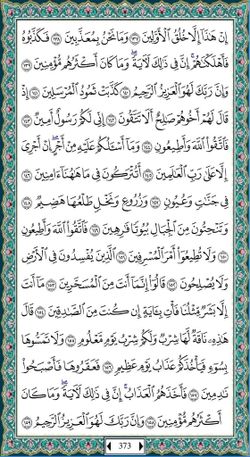 إِنْ هَٰذَا إِلَّا خُلُقُ الْأَوَّلِينَ ١٣٧ وَمَا نَحْنُ بِمُعَذَّبِينَ ١٣٨ فَكَذَّبُوهُ
فَأَهْلَكْنَاهُمْ إِنَّ فِي ذَٰلِكَ لَآيَةً وَمَا كَانَ أَكْثَرُهُم مُّؤْمِنِينَ ١٣٩
وَإِنَّ رَبَّكَ لَهُوَ الْعَزِيزُ الرَّحِيمُ ١٤٠ كَذَّبَتْ ثَمُودُ الْمُرْسَلِينَ ١٤١ إِذْ
قَالَ لَهُمْ أَخُوهُمْ صَالِحٌ أَلَا تَتَّقُونَ ١٤٢ إِنِّي لَكُمْ رَسُولٌ أَمِينٌ ١٤٣
فَاتَّقُوا اللَّهَ وَأَطِيعُونِ ١٤٤ وَمَا أَسْأَلُكُمْ عَلَيْهِ مِنْ أَجْرٍ إِنْ أَجْرِيَ
إِلَّا عَلَىٰ رَبِّ الْعَالَمِينَ ١٤٥ أَتُتْرَكُونَ فِي مَا هَاهُنَا آمِنِينَ ١٤٦
فِي جَنَّاتٍ وَعُيُونٍ ١٤٧ وَزُرُوعٍ وَنَخْلٍ طَلْعُهَا هَضِيمٌ ١٤٨
وَتَنْحِتُونَ مِنَ الْجِبَالِ بُيُوتًا فَارِهِينَ ١٤٩ فَاتَّقُوا اللَّهَ وَأَطِيعُونِ ١٥٠
وَلَا تُطِيعُوا أَمْرَ الْمُسْرِفِينَ ١٥١ الَّذِينَ يُفْسِدُونَ فِي الْأَرْضِ
وَلَا يُصْلِحُونَ ١٥٢ قَالُوا إِنَّمَا أَنتَ مِنَ الْمُسَحَّرِينَ ١٥٣ مَا أَنتَ
إِلَّا بَشَرٌ مِّثْلُنَا فَأْتِ بِآيَةٍ إِن كُنتَ مِنَ الصَّادِقِينَ ١٥٤ قَالَ
هَٰذِهِ نَاقَةٌ لَّهَا شِرْبٌ وَلَكُمْ شِرْبُ يَوْمٍ مَّعْلُومٍ ١٥٥ وَلَا تَمَسُّوهَا
بِسُوءٍ فَيَأْخُذَكُمْ عَذَابُ يَوْمٍ عَظِيمٍ ١٥٦ فَعَقَرُوهَا فَأَصْبَحُوا
نَادِمِينَ ١٥٧ فَأَخَذَهُمُ الْعَذَابُ إِنَّ فِي ذَٰلِكَ لَآيَةً وَمَا كَانَ
أَكْثَرُهُم مُّؤْمِنِينَ ١٥٨ وَإِنَّ رَبَّكَ لَهُوَ الْعَزِيزُ الرَّحِيمُ ١٥٩
373